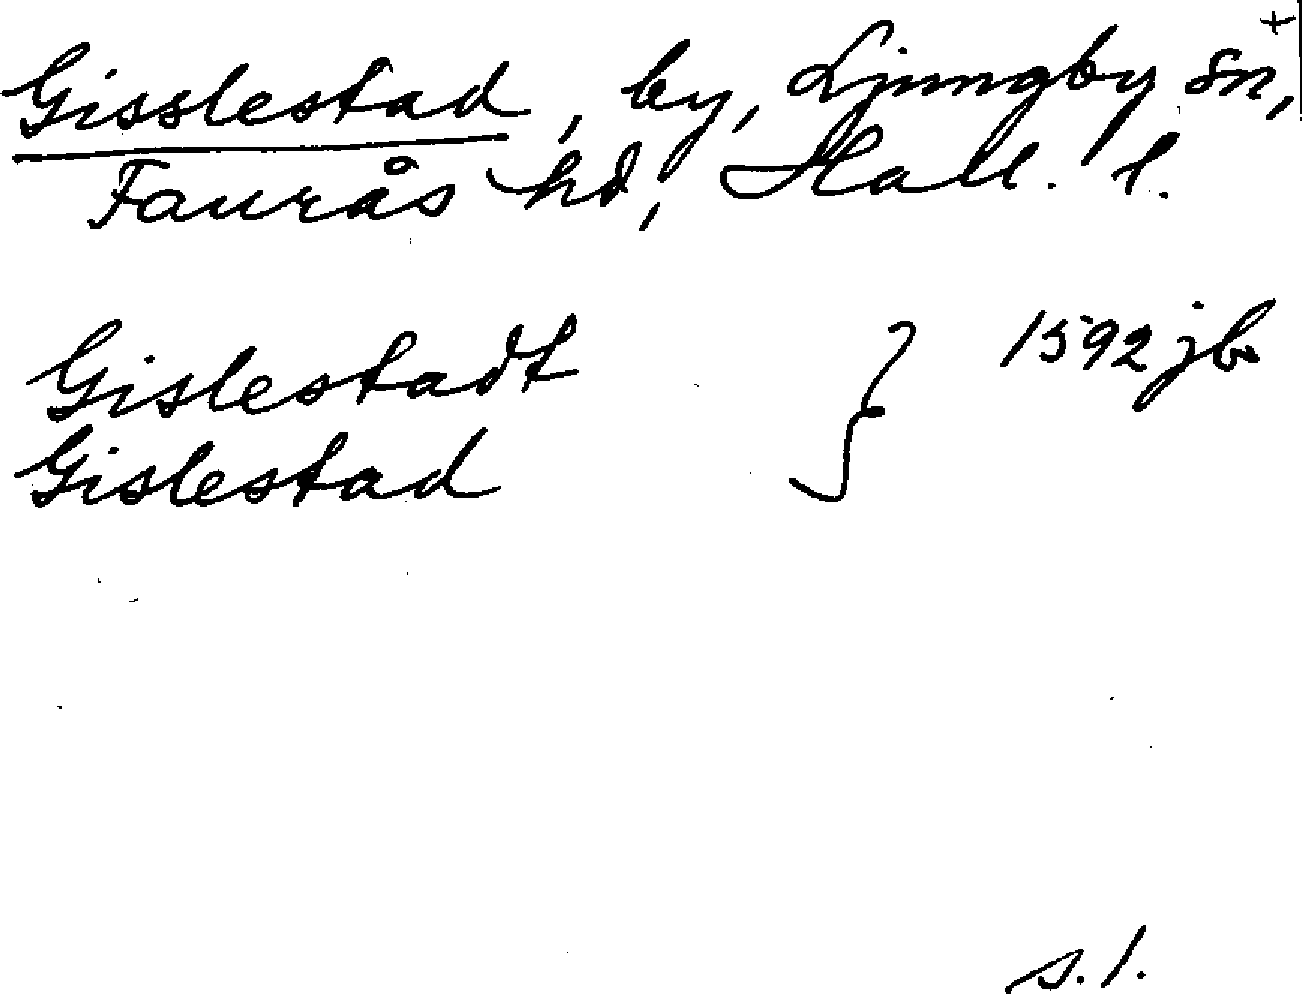 +
Gisslestad, by, Ljungby sn,
Faurås hd, Hall. l.
Gislestadt } 1592 jb
Gislestad
s. 1.